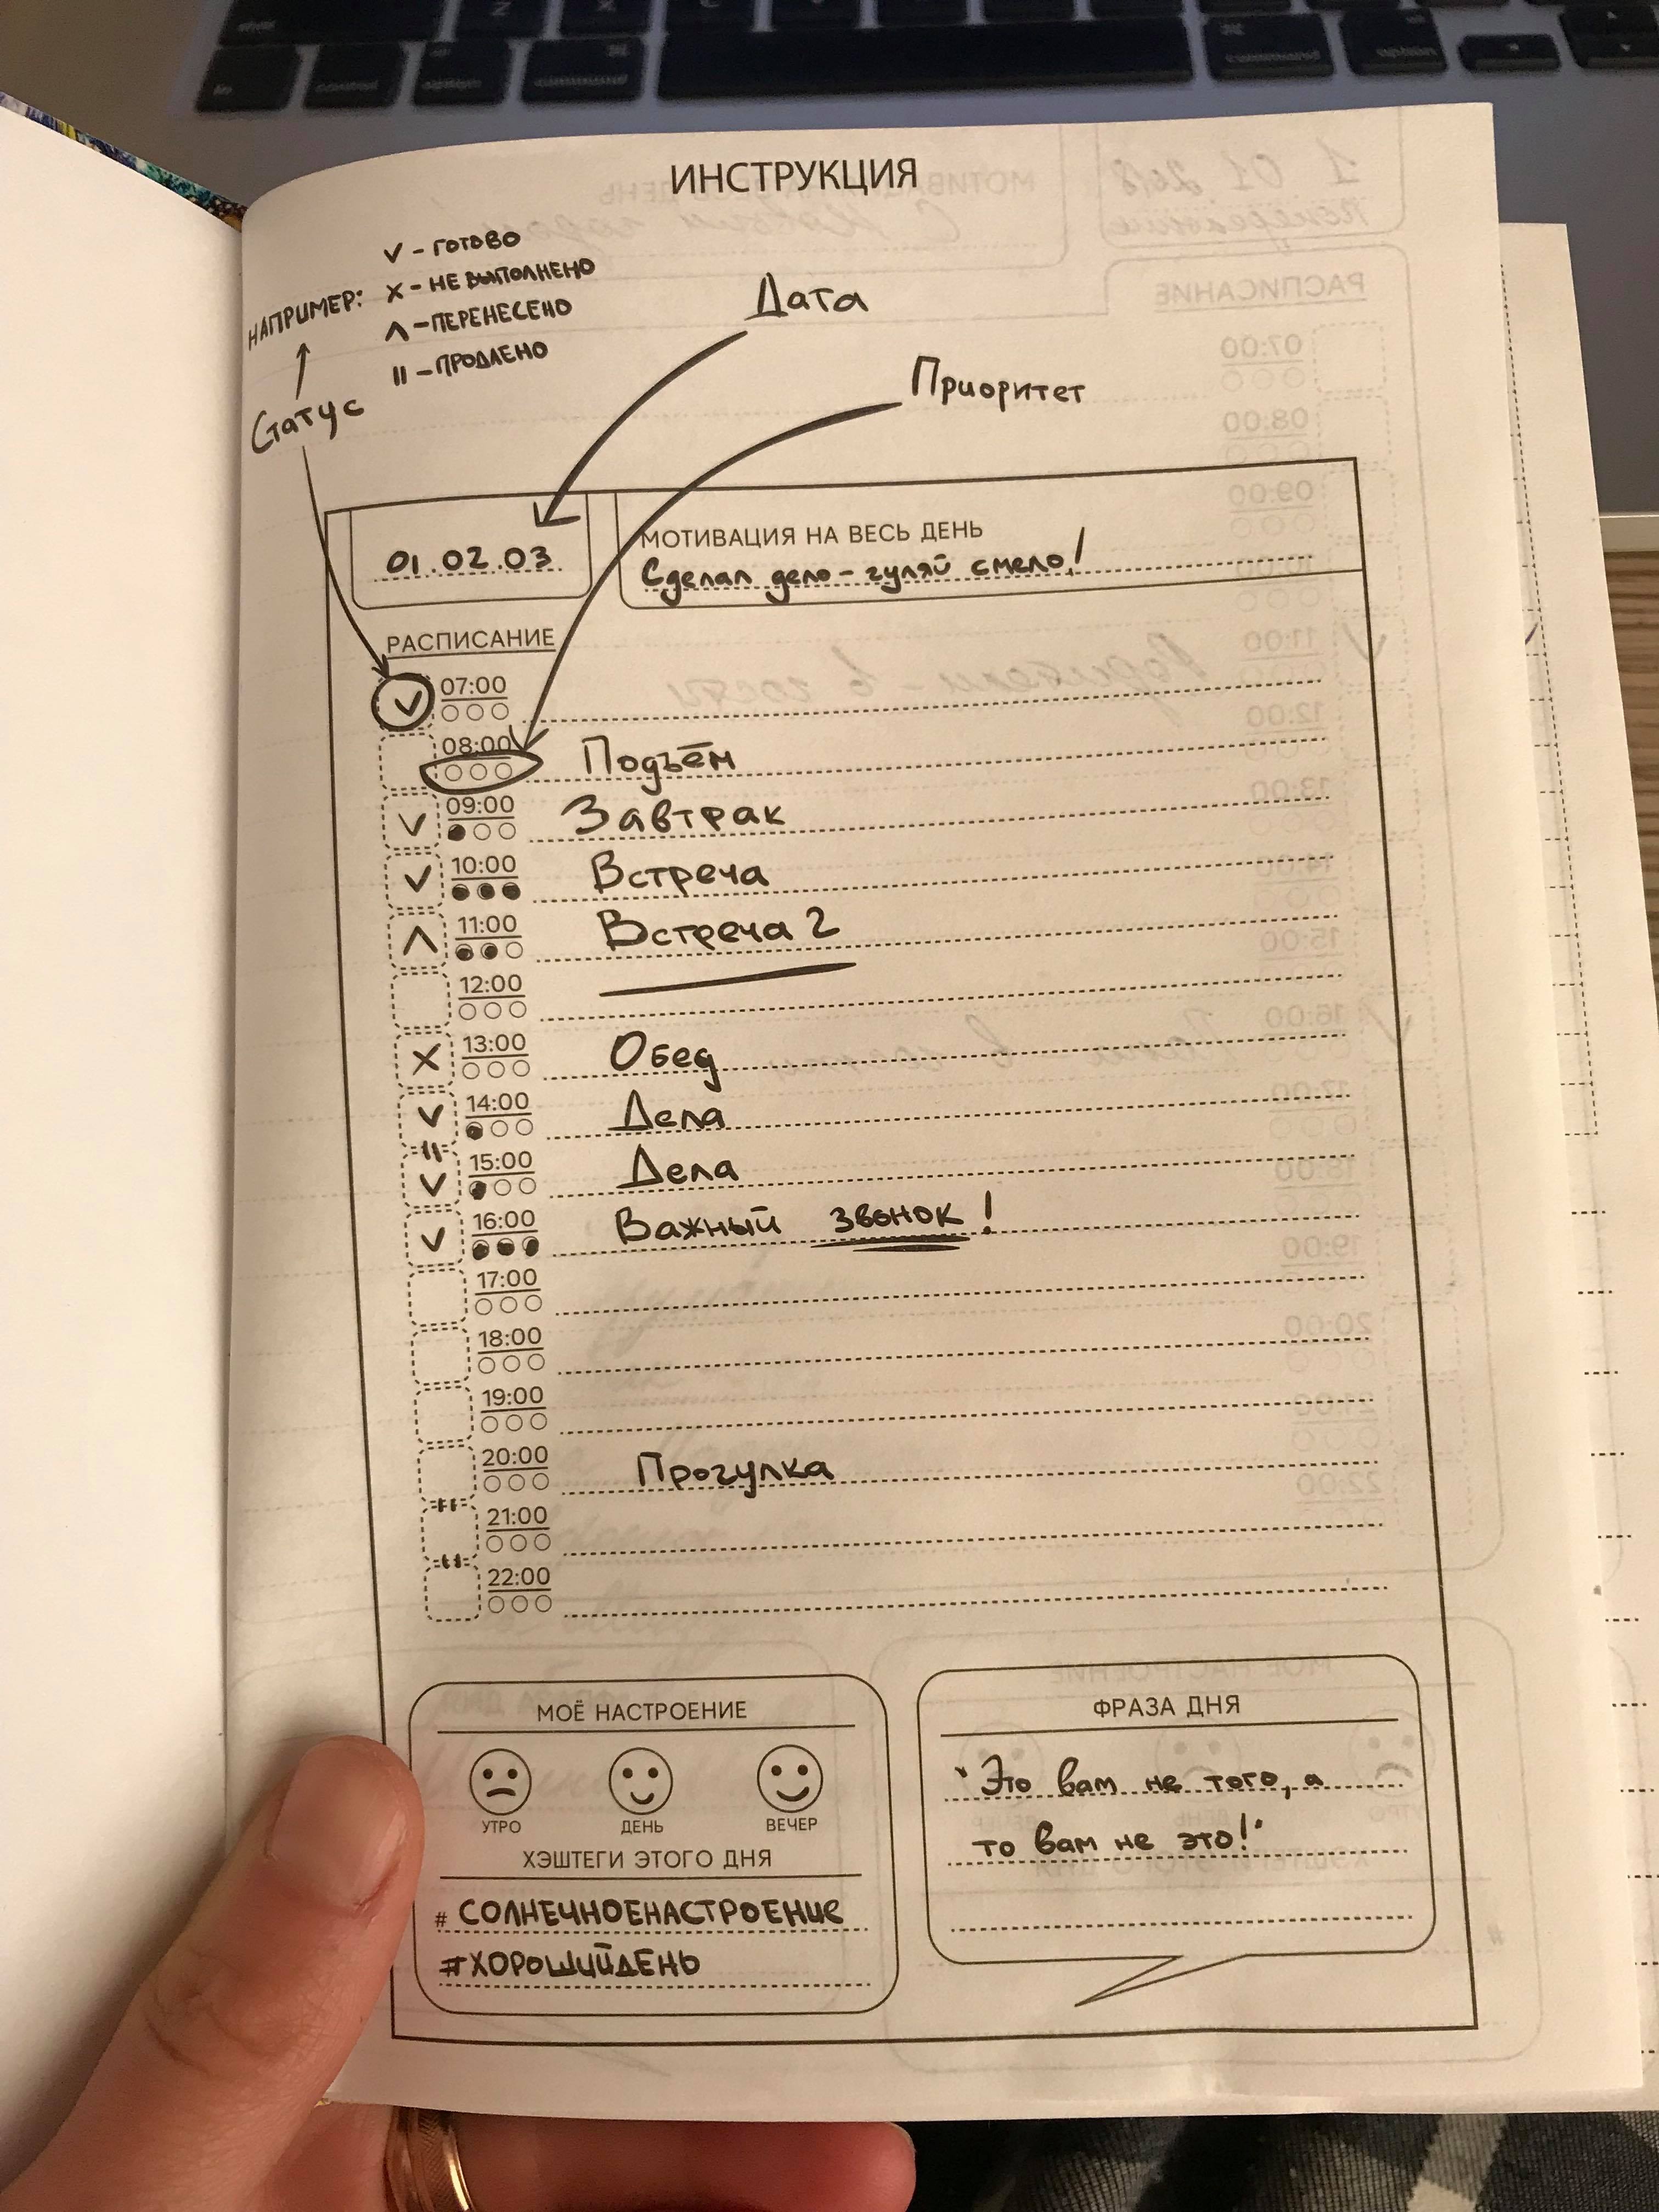 ИНСТРУКЦИЯ
НАПРИМЕР:
V - ГОТОВО
X - НЕ ВЫПОЛНЕНО
Λ - ПЕРЕНЕСЕНО
II - ПРОДЛЕНО
Статус
Дата
Приоритет
01.02.03
МОТИВАЦИЯ НА ВЕСЬ ДЕНЬ
Сделал дело - гуляй смело!
РАСПИСАНИЕ
V 07:00
08:00 Подъём
V 09:00 Завтрак
V 10:00 Встреча
Λ 11:00 Встреча 2
12:00
X 13:00 Обед
V 14:00 Дела
II
V 15:00 Дела
V 16:00 Важный звонок!
17:00
18:00
19:00
20:00 Прогулка
21:00
22:00
МОЁ НАСТРОЕНИЕ
УТРО ДЕНЬ ВЕЧЕР
ХЭШТЕГИ ЭТОГО ДНЯ
# СОЛНЕЧНОЕНАСТРОЕНИЕ
#ХОРОШИЙДЕНЬ
ФРАЗА ДНЯ
"Это вам не того, а
то вам не это!"